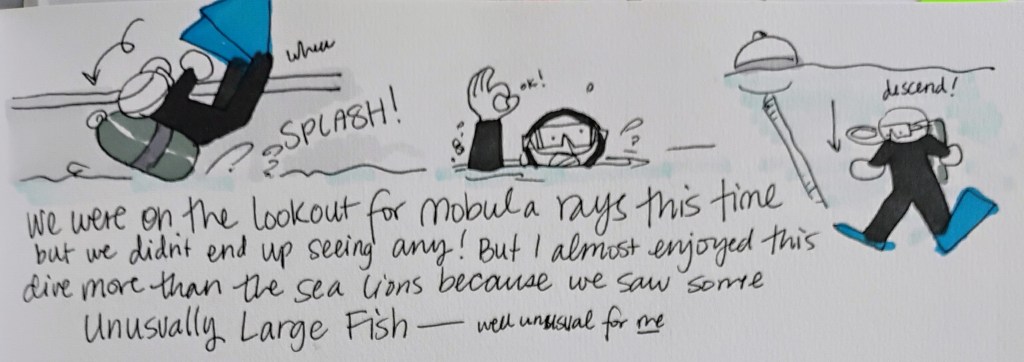 whee
SPLASH!
ok!
descend!
We were on the lookout for mobula rays this time
but we didn't end up seeing any! But I almost enjoyed this
dive more than the sea lions because we saw some
Unusually Large Fish — well unusual for me